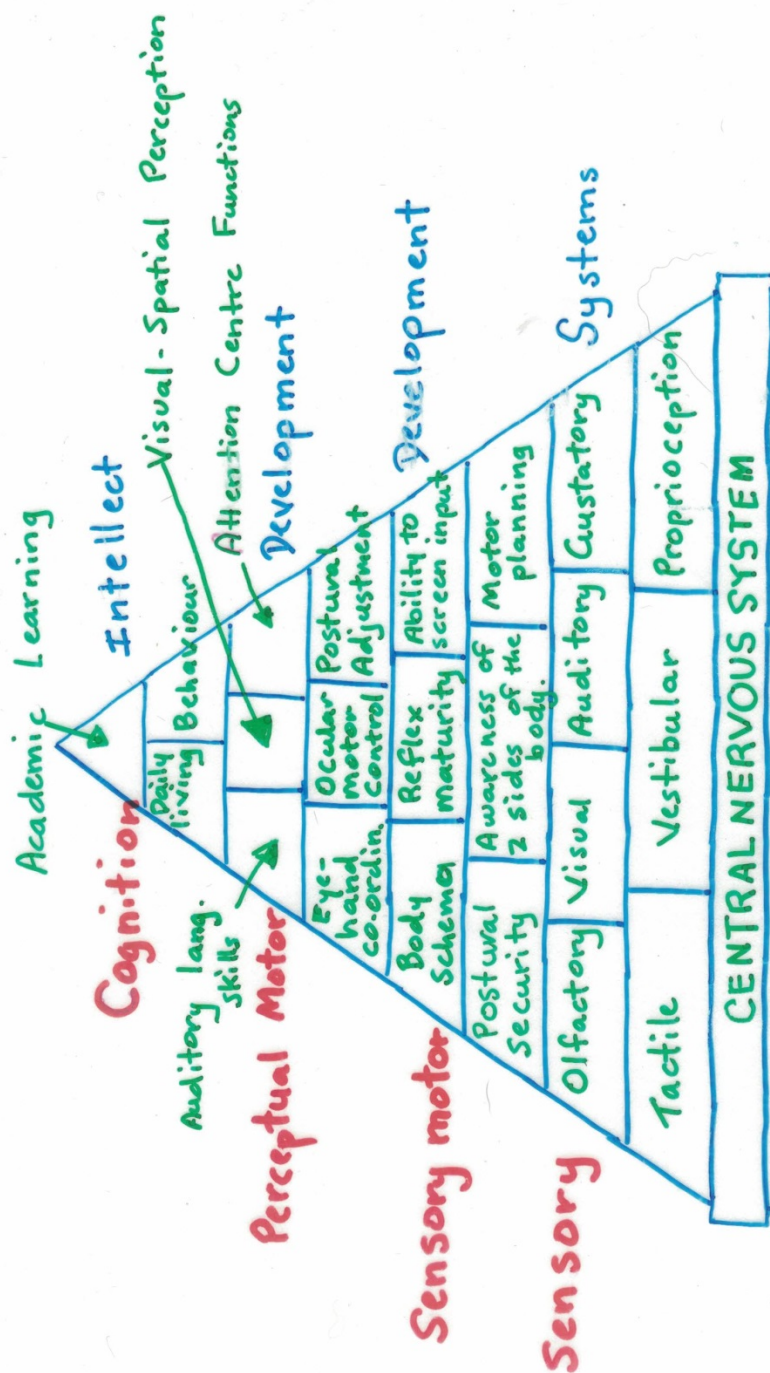 Academic Learning
Cognition
Intellect
Daily
living
Behaviour
Visual-Spatial Perception
Auditory lang.
skills
Attention Centre Functions
Perceptual Motor
Development
Eye-
hand
co-ordin.
Ocular
motor
control
Postural
Adjustment
Body
schema
Reflex
maturity
Ability to
screen input
Sensory motor
Development
Postural
security
Awareness of
2 sides of the
body.
Motor
planning
Sensory
Systems
Olfactory
Visual
Auditory
Gustatory
Tactile
Vestibular
Proprioception
CENTRAL NERVOUS SYSTEM